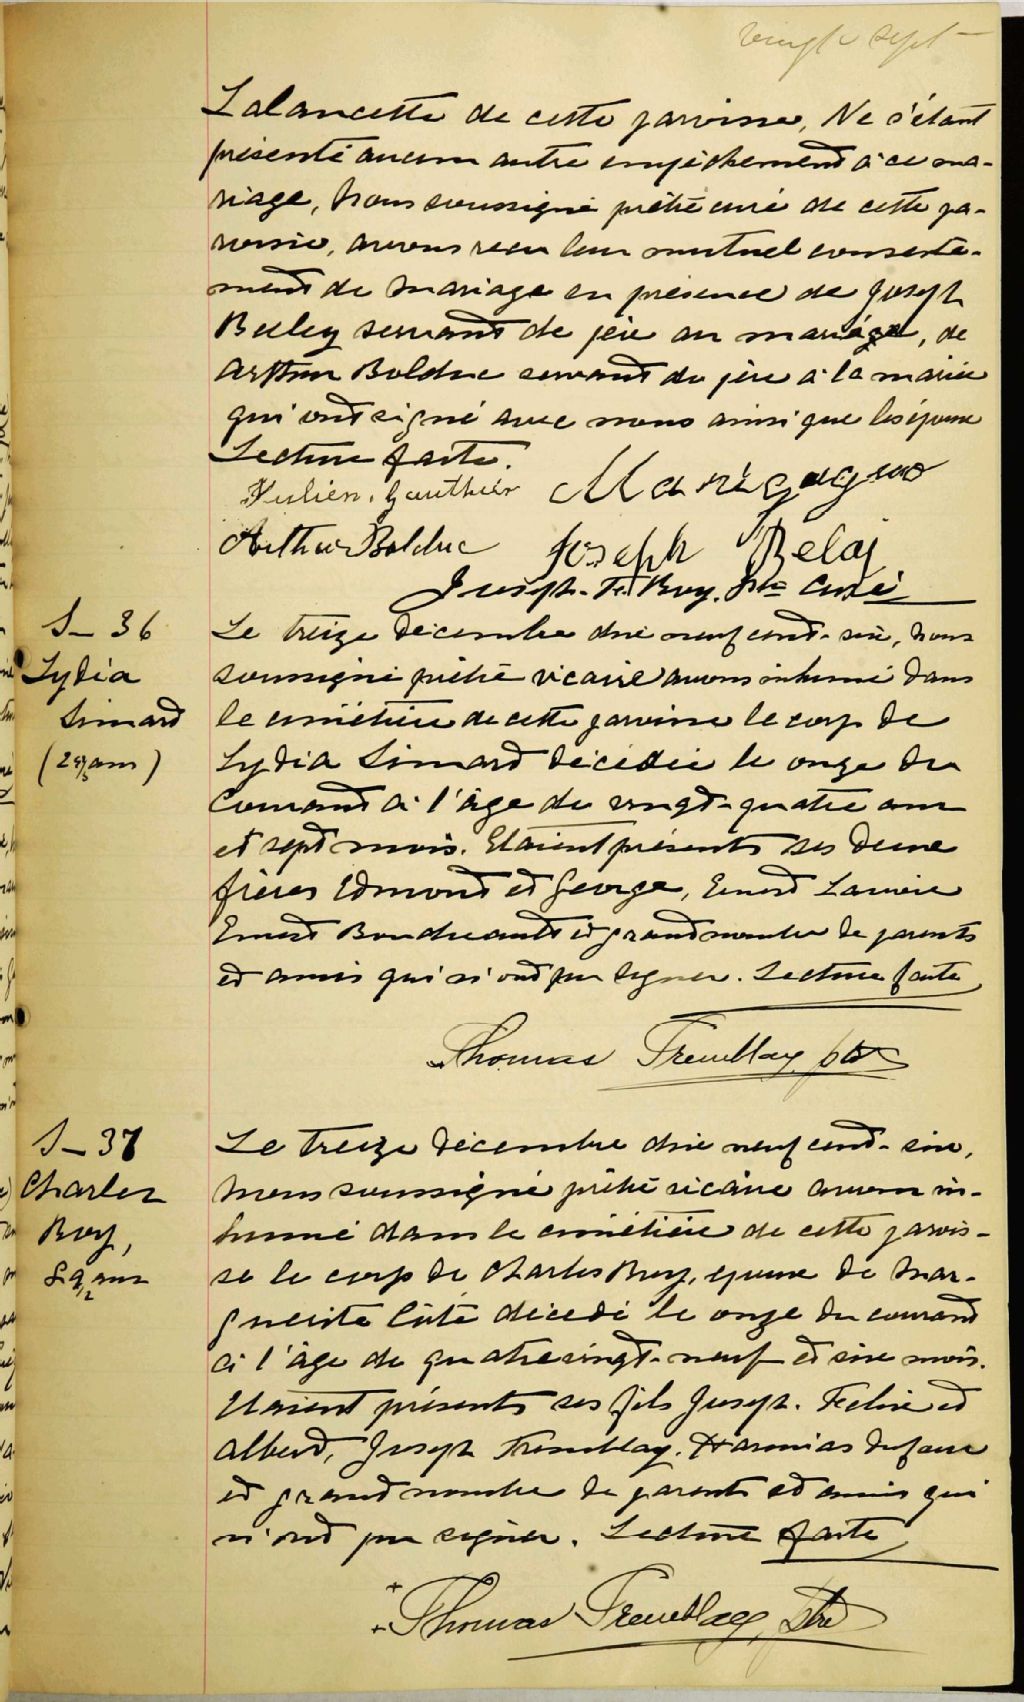 vingt sept
Lalancette de cette paroisse, Ne s'étant
présenté aucun autre empêchement à ce ma-
riage, Nous soussigné prêtre curé de cette pa-
roisse, avons reçu leur mutuel consente-
ment de mariage en présence de Joseph
Beley servant de père au marié, de
Arthur Bolduc servant de père à la mariée
qui ont signé avec nous ainsi que les époux
Lecture faite.
Julien Gauthier Marie Gagnon
Arthur Bolduc Joseph Belaj
Joseph Roy. Ptre Curé
S_ 36
Lydia
Simard
Le treize décembre dix neuf cent-six, nous
soussigné prêtre vicaire avons inhumé dans
le cimétière de cette paroisse le corp de
Lydia Simard décédée le onze du
courant à l'âge de vingt-quatre ans
et sept mois. Etaient présents ses deux
frères Edmond et George, Ernest
Ernest Boudreault et grand nombre de parents
et amis qui n'ont pu signer. Lecture faite
Thomas Tremblay ptre
S_ 37
Charles
Roy,
89 ans
Le treize décembre dix neuf cent-six,
Nous soussigné prêtre vicaire avons in-
humé dans le cimétière de cette parois-
se le corp de Charles Roy, époux de Mar-
guerite Côté décédé le onze du courant
à l'âge de quatrevingt-neuf et six mois.
Etaient présents ses fils Joseph. Felix et
Albert, Joseph Tremblay. Hermias Dufour
et grand nombre de parents et amis qui
n'ont pu signer. Lecture faite
Thomas Tremblay, ptre